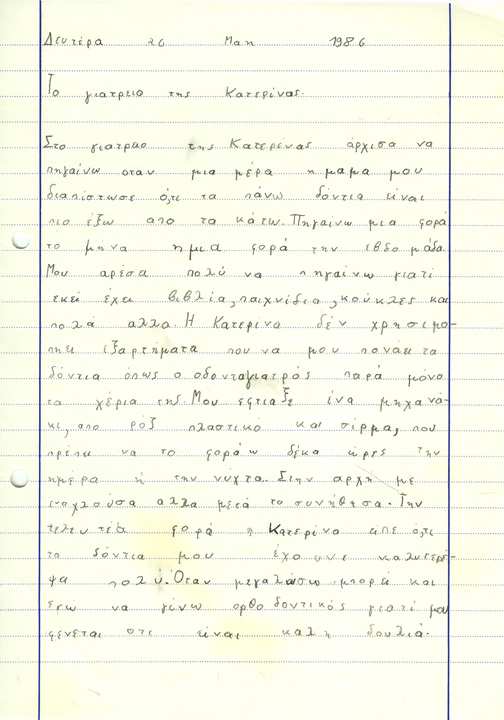 Δευτέρα 26 Μαη 1986
Το γιατρειο της Κατερίνας.
Στο γιατρειο της Κατερίνας άρχισα να
πηγαίνω οταν μια μέρα η μαμα μου
διαπίστωσε ότι τα πάνω δόντια είναι
πιο έξω απο τα κάτω. Πηγαίνω μια φορά
το μηνα η μια φορά την εβδομάδα.
Μου αρέσα πολύ να πηγαίνω γιατί
εκεί έχει βιβλία, παιχνίδια, κούκλες και
πολά αλλα. Η Κατερίνα δέν χρησιμο-
πηει εξαρτήματα που να μου πονάει τα
δόντια όπως ο οδοντογιατρός παρά μόνο
τα χέρια της. Μου εφτιαξε ένα μηχανά-
κι, απο ρόζ πλαστικό και σίρμα, που
πρέπει να το φοράω δέκα ώρες την
ημερα ή την νύχτα. Στην αρχη με
ενοχλούσα αλλα μετά το συνήθησα. Την
τελευτέα φορά η Κατερίνα είπε ότι
τα δόντια μου έχουνε καλυτερέ-
ψα πολύ. Όταν μεγαλώσω μπορεί και
εγω να γίνω ορθοδοντικός γιατί μου
φένεται οτι είναι καλη δουλιά.